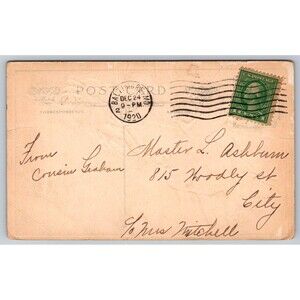 POST CARD
BALTIMORE, MD.
DEC 24
9-PM
1920
From
Cousin Graham
Master L. Ashburn
815 Woodly St
City
c/o Mrs Mitchell